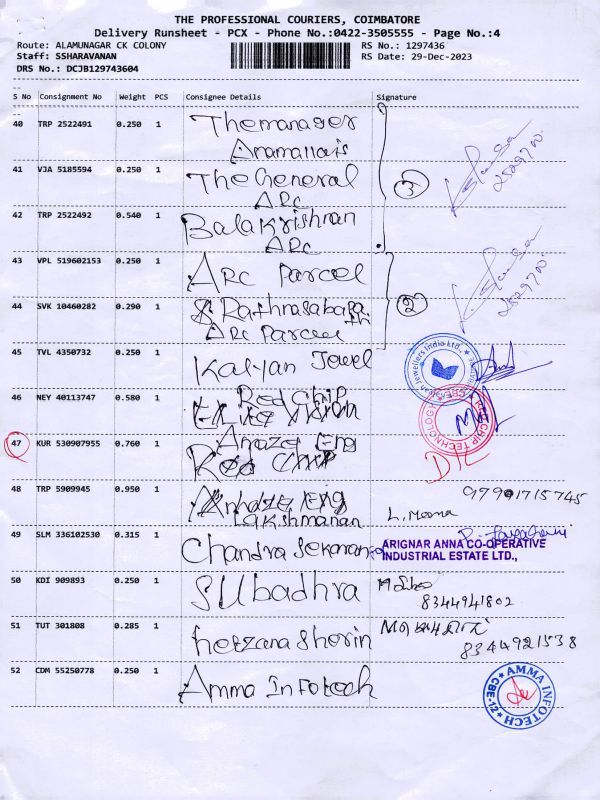 THE PROFESSIONAL COURIERS, COIMBATORE
Delivery Runsheet - PCX - Phone No.:0422-3505555 - Page No.:4
Route: ALAMUNAGAR CK COLONY RS No.: 1297436
Staff: SSHARAVANAN RS Date: 29-Dec-2023
DRS No.: DCJB129743604
S No Consignment No Weight PCS Consignee Details Signature
40 TRP 2522491 0.250 1 The manager
Anamallais
41 VJA 5185594 0.250 1 The General
ARC
3
42 TRP 2522492 0.540 1 Balakrishnan
ARC
43 VPL 519602153 0.250 1 ARC Parcel
44 SVK 10460282 0.290 1 Rathnasabapa
th
ARC Parcel
2
45 TVL 4350732 0.250 1 Kalyan Jewel
46 NEY 40113747 0.580 1 Red Chip
47 KUR 530907955 0.760 1 Amaze Eng
48 TRP 5909945 0.950 1 Lakshmanan L. Meena
97901715745
49 SLM 336102530 0.315 1 Chandra Sekaran
ARIGNAR ANNA CO-OPERATIVE
INDUSTRIAL ESTATE LTD.,
50 KDI 909893 0.250 1 Subadhra
8344941802
51 TUT 301808 0.285 1 Sherin
8344921538
52 CDM 55250778 0.250 1 Amma Infotech
AMMA INFOTECH
CBE-12